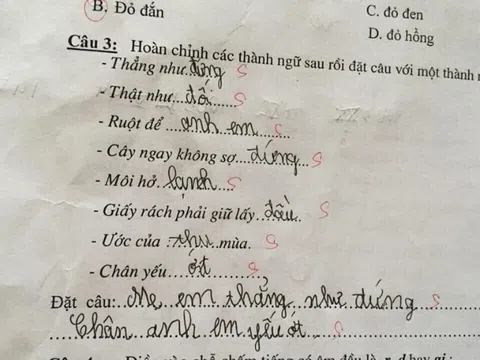 B. Đỏ đắn
C. đỏ đen
D. đỏ hồng
Câu 3: Hoàn chỉnh các thành ngữ sau rồi đặt câu với một thành
- Thẳng như...đứng S
- Thật như...đố....... S
- Ruột để ...anh em.... S
- Cây ngay không sợ...đứng... S
- Môi hở..lạnh... S
- Giấy rách phải giữ lấy..đầu. S
- Ước của :thu..mùa. S
- Chân yếu...ớt.........,
Đặt câu:..Mẹ..em thẳng..như đứng S
......Chân..anh em yếu ớt.... S